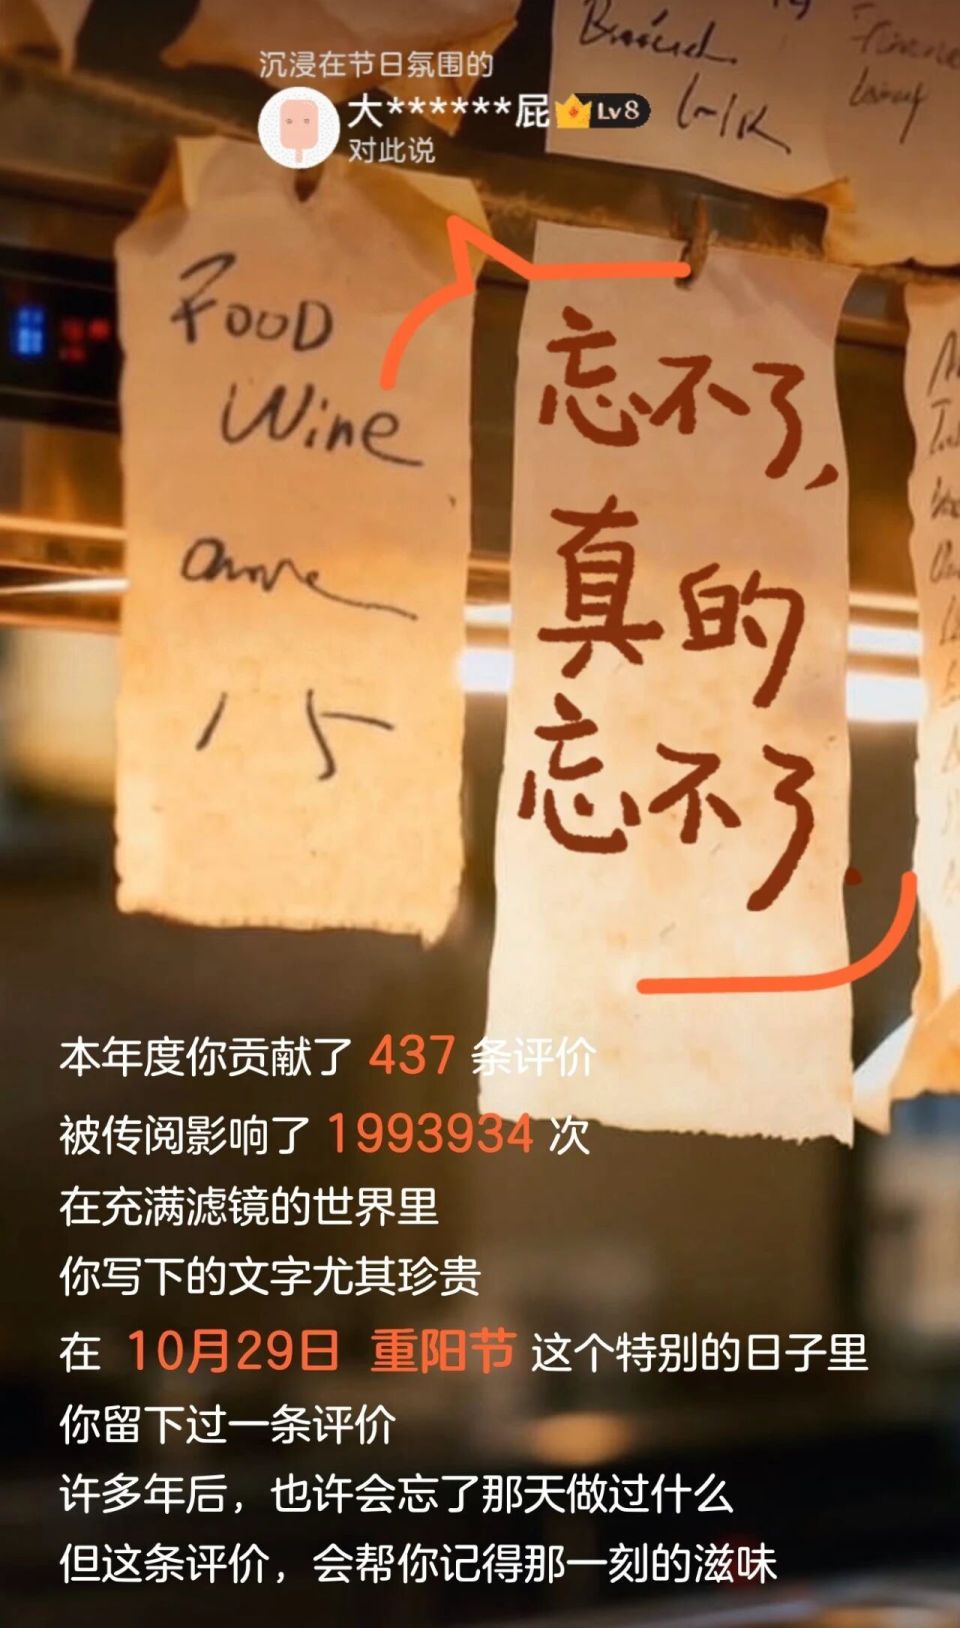 沉浸在节日氛围的
大******屁 Lv8
对此说
FOOD
Wine
15
忘不了,
真的
忘不了.
本年度你贡献了 437 条评价
被传阅影响了 1993934 次
在充满滤镜的世界里
你写下的文字尤其珍贵
在 10月29日 重阳节 这个特别的日子里
你留下过一条评价
许多年后，也许会忘了那天做过什么
但这条评价，会帮你记得那一刻的滋味